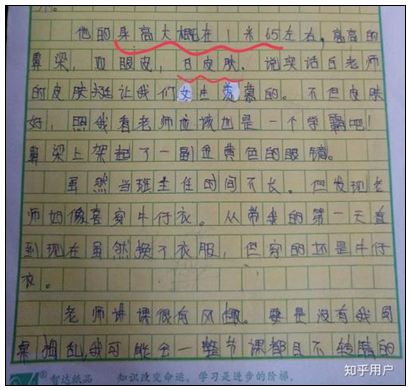 他的身高大概在1米65左右，高高的
鼻梁，双眼皮，白皮肤。说实话白老师
的皮肤挺让我们女生羡慕的。不但皮肤
好，照我看老师应该也是一个学霸吧！
鼻梁上架起了一副金黄色的眼镜。
虽然当班主任的时间不长。但发现老
师好像喜穿牛仔衣。从带我的第一天直
到现在虽然换了衣服，但穿的还是牛仔
衣。
老师讲课很有风趣。要是没有我同
桌捣乱，我可能会一整节课都目不转睛的
智达纸品 知识改变命运，学习是进步的阶梯。
知乎用户